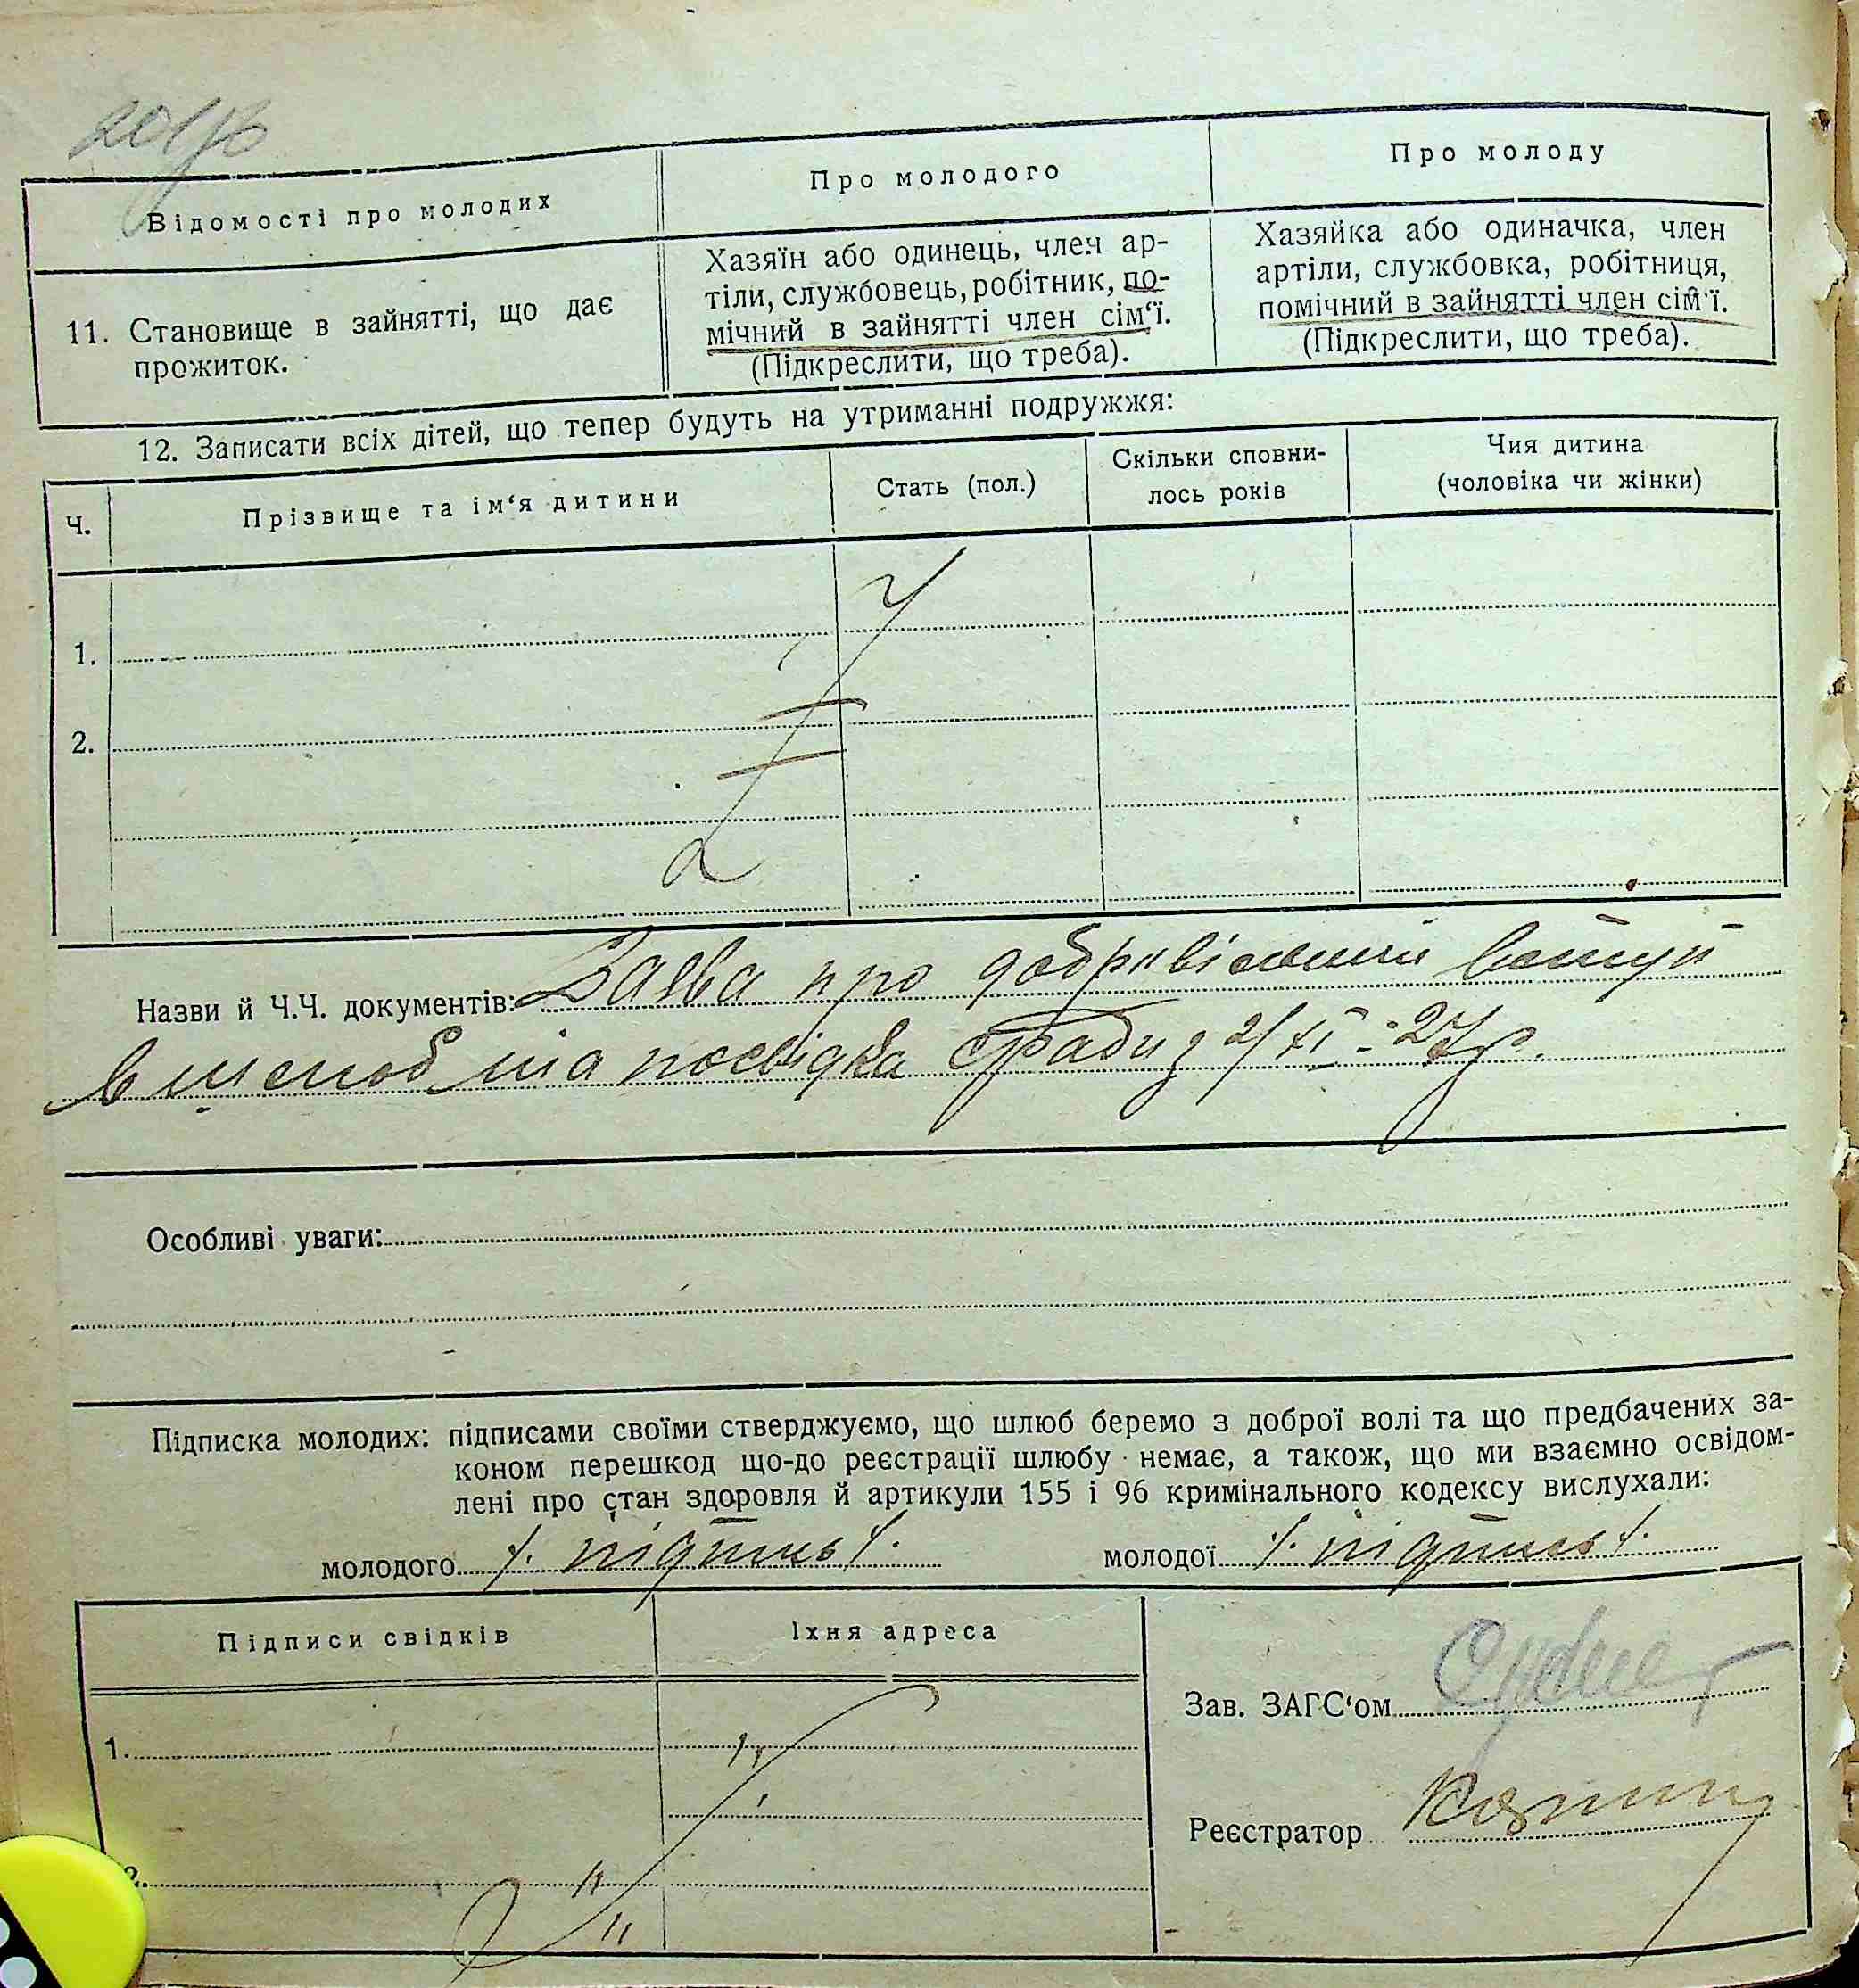 Відомості про молодих
Про молодого
Про молоду
11. Становище в зайнятті, що дає
прожиток.
Хазяїн або одинець, член ар-
тіли, службовець, робітник, по-
мічний в зайнятті член сім‘ї.
(Підкреслити, що треба).
Хазяйка або одиначка, член
артіли, службовка, робітниця,
помічний в зайнятті член сім‘ї.
(Підкреслити, що треба).
12. Записати всіх дітей, що тепер будуть на утриманні подружжя:
Ч.
Прізвище та ім‘я дитини
Стать (пол.)
Скільки сповни-
лось років
Чия дитина
(чоловіка чи жінки)
1.
2.
Назви й Ч.Ч. документів: Заява про добровільний вступ
в шлюб та посвідка с/ради з 2/XI-27р.
Особливі уваги:
Підписка молодих: підписами своїми стверджуємо, що шлюб беремо з доброї волі та що предбачених за-
коном перешкод що-до реєстрації шлюбу немає, а також, що ми взаємно освідом-
лені про стан здоровля й артикули 155 і 96 кримінального кодексу вислухали:
молодого /. підпись /.
молодої /. підпись /.
Підписи свідків
Їхня адреса
1.
2.
Зав. ЗАГС‘ом
Реєстратор